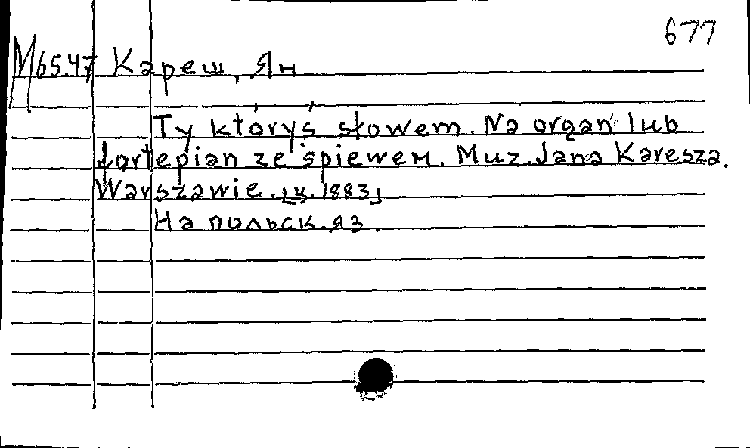 677
М65.47 Кареш, Ян
Ty któryś słowem. Na organ lub
fortepian ze śpiewem. Muz. Jana Karesza.
Warszawie. 1883
На польск. яз.